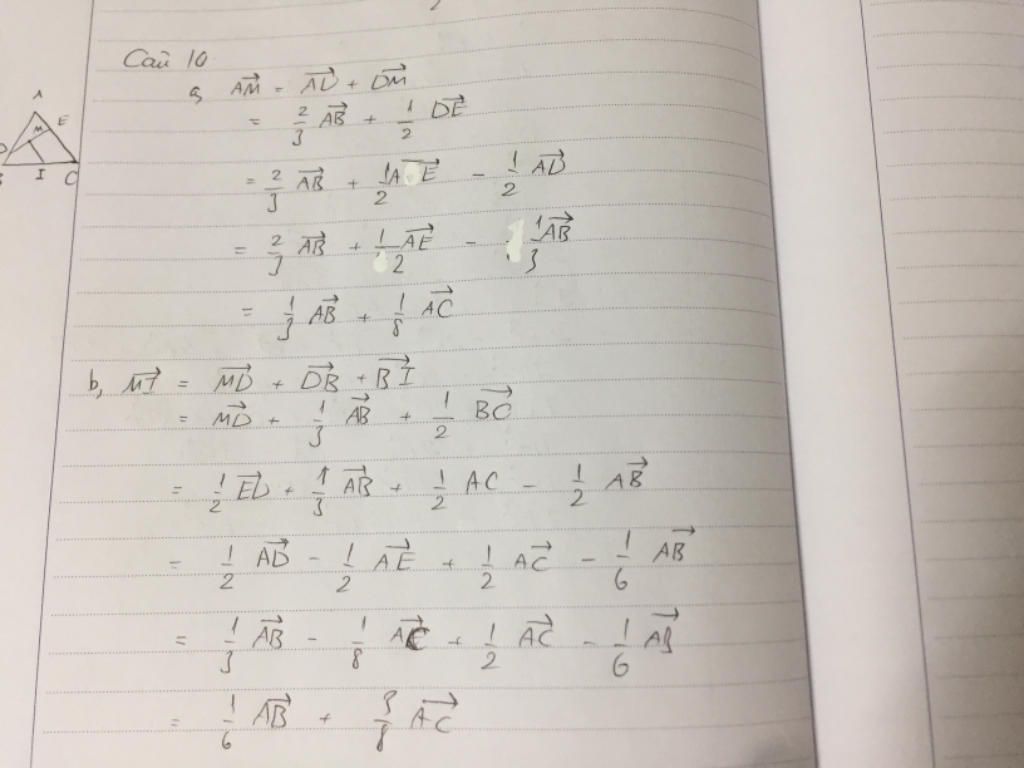 Câu 10
a, AM→ = AD→ + DM→
= 2/3 AB→ + 1/2 DE→
= 2/3 AB→ + 1/2 AE→ - 1/2 AD→
= 2/3 AB→ + 1/2 AE→ - 1/3 AB→
= 1/3 AB→ + 1/8 AC→
b, MI→ = MD→ + DB→ + BI→
= MD→ + 1/3 AB→ + 1/2 BC→
= 1/2 ED→ + 1/3 AB→ + 1/2 AC - 1/2 AB→
= 1/2 AD→ - 1/2 AE→ + 1/2 AC→ - 1/6 AB→
= 1/3 AB→ - 1/8 AC→ + 1/2 AC→ - 1/6 AB→
= 1/6 AB→ + 3/8 AC→
A
M E
D
B I C